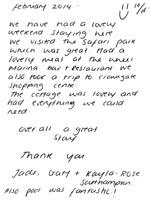 February 2014.
10/10
We have had a lovely
weekend staying here
We visited the Safari park
which was great. Had a
lovely meal at the Wheel
Marina Bar & Restaurant. We
also took a trip to crowngate
shopping centre.
The cottage was lovely and
had everything we could
need
over all a great
stay
Thank you
Jade, Gary + Kayla-Rose
Southampton
Also pool was fantastic!